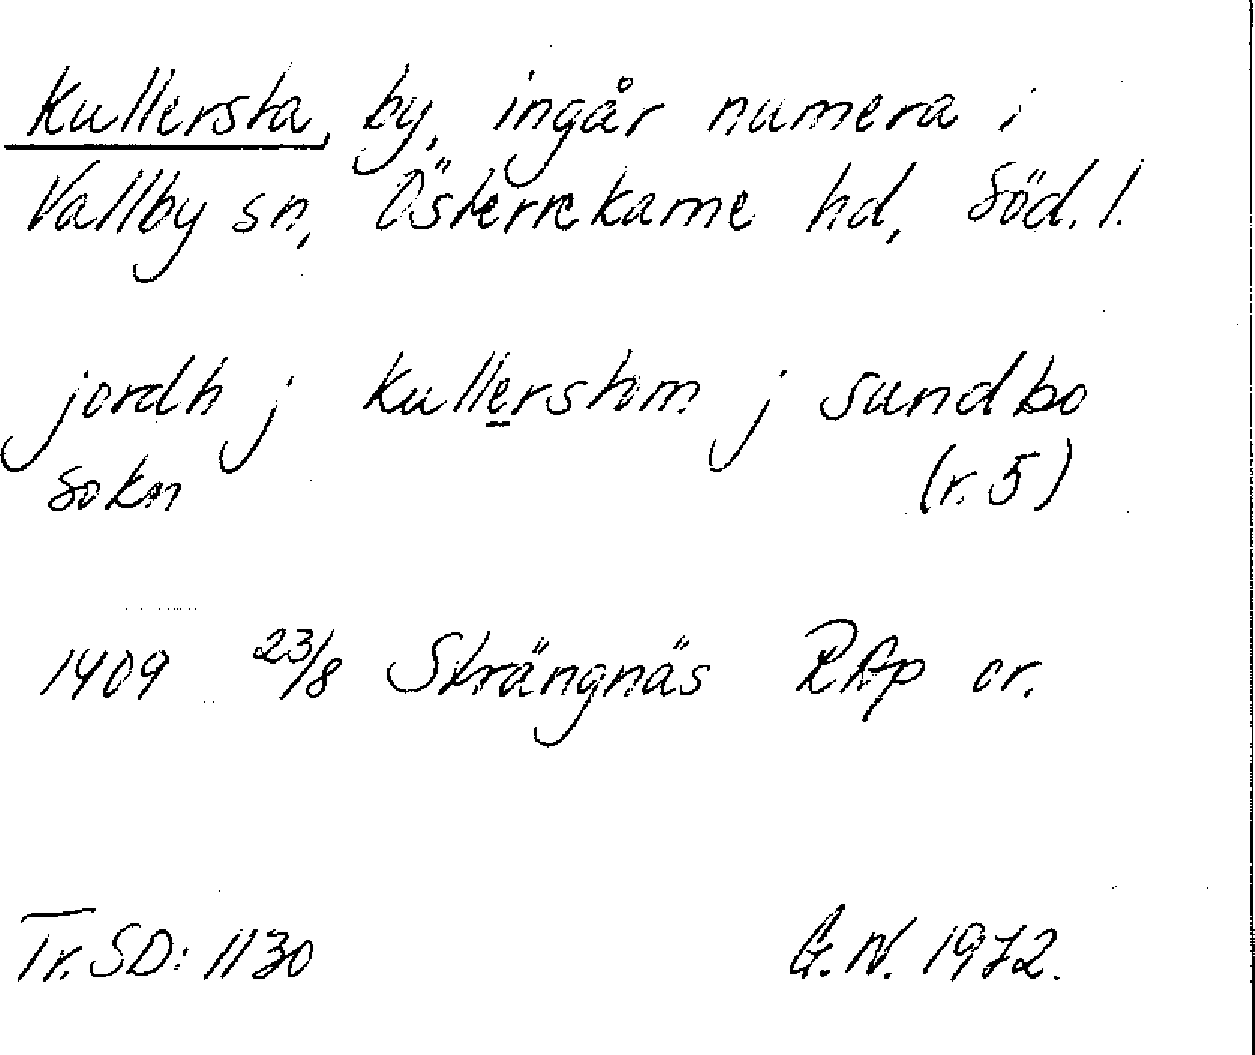 Kullersta, by, ingår numera i
Vallby sn, Österrekarne hd, Söd. l.
jordh j kullerstom j sundbo
sokn (r. 5)
1409 23/8 Strängnäs RAp or.
Tr. SD: 1130 G. N. 1972.